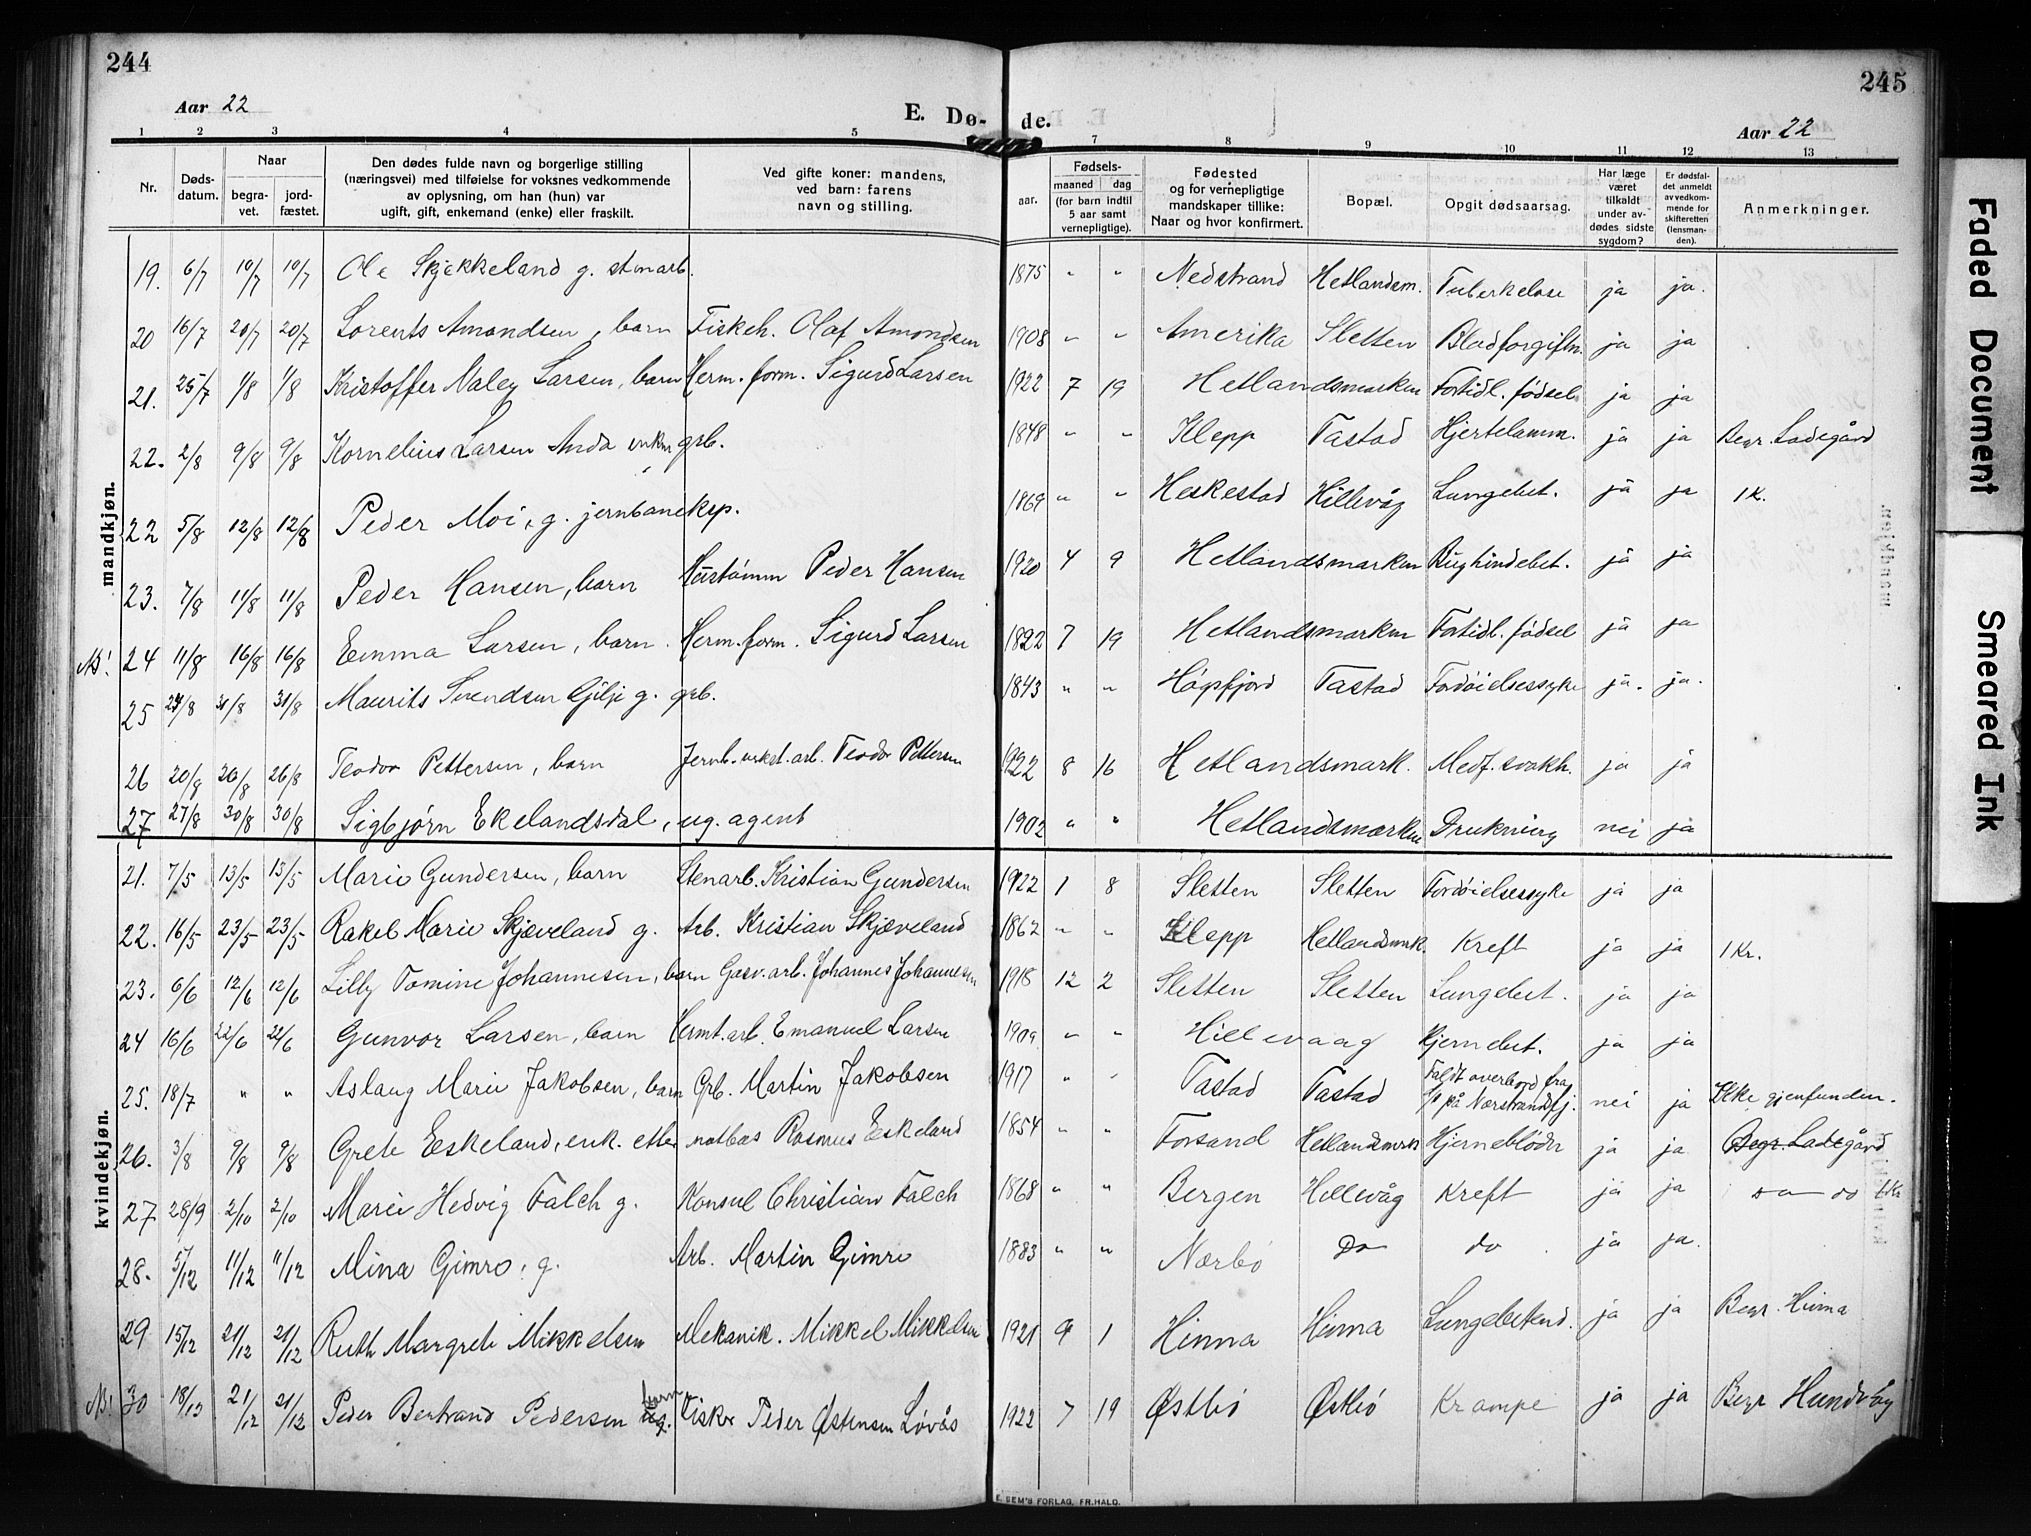 244
245
Aar 22
E. Dø-
de.
Aar 22
1 2 3 4 5 7 8 9 10 11 12 13
Nr.
Døds-
datum.
Naar
begra-
vet.
jord-
fæstet.
Den dødes fulde navn og borgerlige stilling
(næringsvei) med tilføielse for voksnes vedkommende
av oplysning, om han (hun) var
ugift, gift, enkemand (enke) eller fraskilt.
Ved gifte koner: mandens,
ved barn: farens
navn og stilling.
aar.
Fødsels-
maaned dag
(for barn indtil
5 aar samt
vernepligtige).
Fødested
og for vernepligtige
mandskaper tillike:
Naar og hvor konfirmert.
Bopæl.
Opgit dødsaarsag.
Har læge
været
tilkaldt
under av-
dødes sidste
sygdom?
Er dødsfal-
det anmeldt
av vedkom-
mende for
skifteretten
(lensman-
den).
Anmerkninger.
mandkjøn.
19. 6/7 10/7 10/7 Ole Skjekkeland g. stenarb. 1875 " " Nedstrand Hetlandsm. Tuberkelose ja ja.
20 16/7 20/7 20/7 Lorents Amondsen, barn Fiskeh. Olaf Amondsen 1908 " " Amerika Sletten Blodforgiftn. ja ja
21. 25/7 1/8 1/8 Kristoffer Maley Larsen, barn Herm. form. Sigurd Larsen 1922 7 19 Hetlandsmarken Fortidl. fødsel ja ja
22. 2/8 9/8 9/8 Kornelius Larsen Anda enkm. grb. 1848 " " Klepp Tastad Hjertelamm. ja ja Begr. Ladegård
22 5/8 12/8 12/8 Peder Moi, g. jernbaneksp. 1869 " " Heskestad Hillevåg Lungebet. ja ja 1 K.
23. 7/8 11/8 11/8 Peder Hansen, barn Hustømm Peder Hansen 1920 4 9 Hetlandsmarken Bughindebet. ja ja
NB! 24 11/8 16/8 16/8 Emma Larsen, barn. Herm. form. Sigurd Larsen 1822 7 19 Hetlandsmarken Fortidl. fødsel ja ja
25 24/8 31/8 31/8 Maurits Svendsen Gilje g. grb. 1843 " " Høgsfjord Tastad Fordøielsessyke ja. ja.
26 20/8 26/8 26/8 Teodor Pettersen, barn Jernb. verkst. arb. Teodor Pettersen 1922 8 16 Hetlandsmark. Medf. svakh. ja ja
27 27/8 30/8 30/8 Sigbjørn Ekelandsdal, ug. agent 1902 " " Hetlandsmarken Drukning nei ja
kvindekjøn.
21. 7/5 13/5 13/5 Marie Gundersen, barn Stenarb. Kristian Gundersen 1922 1 8 Sletten Sletten Fordøielsessyke ja ja
22. 16/5 23/5 23/5 Rakel Marie Skjæveland g. Arb. Kristian Skjæveland 1862 " " Klepp Hetlandsmrk. Kreft ja ja 1 Kr.
23. 6/6 12/6 12/6 Lilly Tomine Johannesen, barn Gasv. arb. Johannes Johannesen 1918 12 2 Sletten Sletten Lungebet. ja ja
24 16/6 22/6 22/6 Gunvor Larsen, barn Hermt. arb. Emanuel Larsen 1909 " " Hillevaag Hjernebet. ja ja
25. 18/7 " " Aslaug Marie Jakobsen, barn Grb. Martin Jakobsen 1917 " " Tastad Tastad Faldt overbord fra
på Nærstrandsfj. nei ja Ikke gjenfunden.
26. 3/8 9/8 9/8 Grete Eskeland, enk. etter matbas Rasmus Eskeland 1854 " " Forsand Hetlandsmrk Hjerneblødn ja ja. Begr. Ladegård
27 28/9 2/10 2/10 Marie Hedvig Falch g. Konsul Christian Falch 1868 " " Bergen Hillevåg Kreft ja ja do 1 Kr
28. 5/12 11/12 11/12 Mina Gimre, g. Arb. Martin Gimre 1883 " " Nærbø Do do ja ja.
29 15/12 21/12 21/12 Ruth Margrete Mikkelsen Mekanik. Mikkel Mikkelsen 1921 9 1 Hinna Hinna Lungebetend. ja ja Begr. Hinna
NB! 30 18/12 21/12 21/12 Peder Bertrand Pedersen barn Fisker Peder Østensen Løvås 1922 7 19 Østbø Østbø Krampe ja ja Begr Hundvåg
E. SEM'S FORLAG, FR.HALD.
Faded Document
Smeared Ink